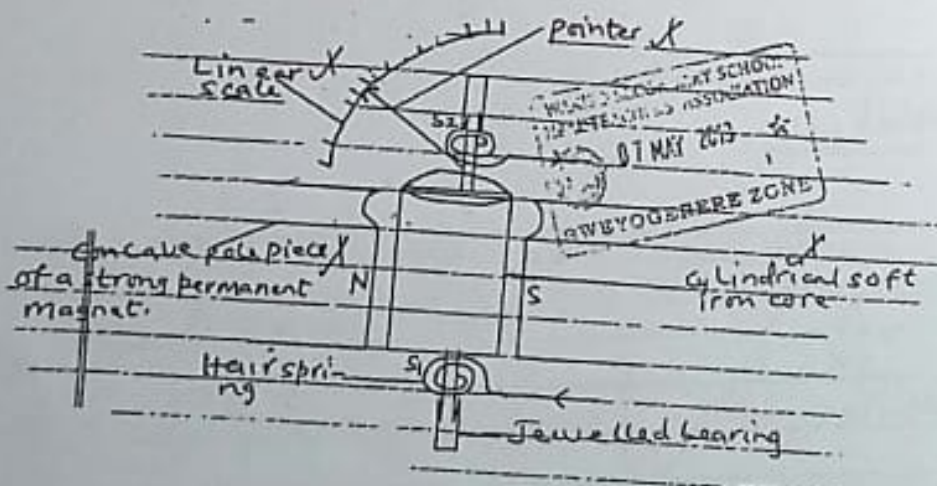 Pointer X
Linear X
scale
S2
SCHOOL
ASSOCIATION
07 MAY 2013
GWEYOGERERE ZONE
Concave pole piece X
of a strong permanent
magnet.
N
S
X
Cylindrical soft
iron core
Hair spri-
ng
S1
Jewelled bearing